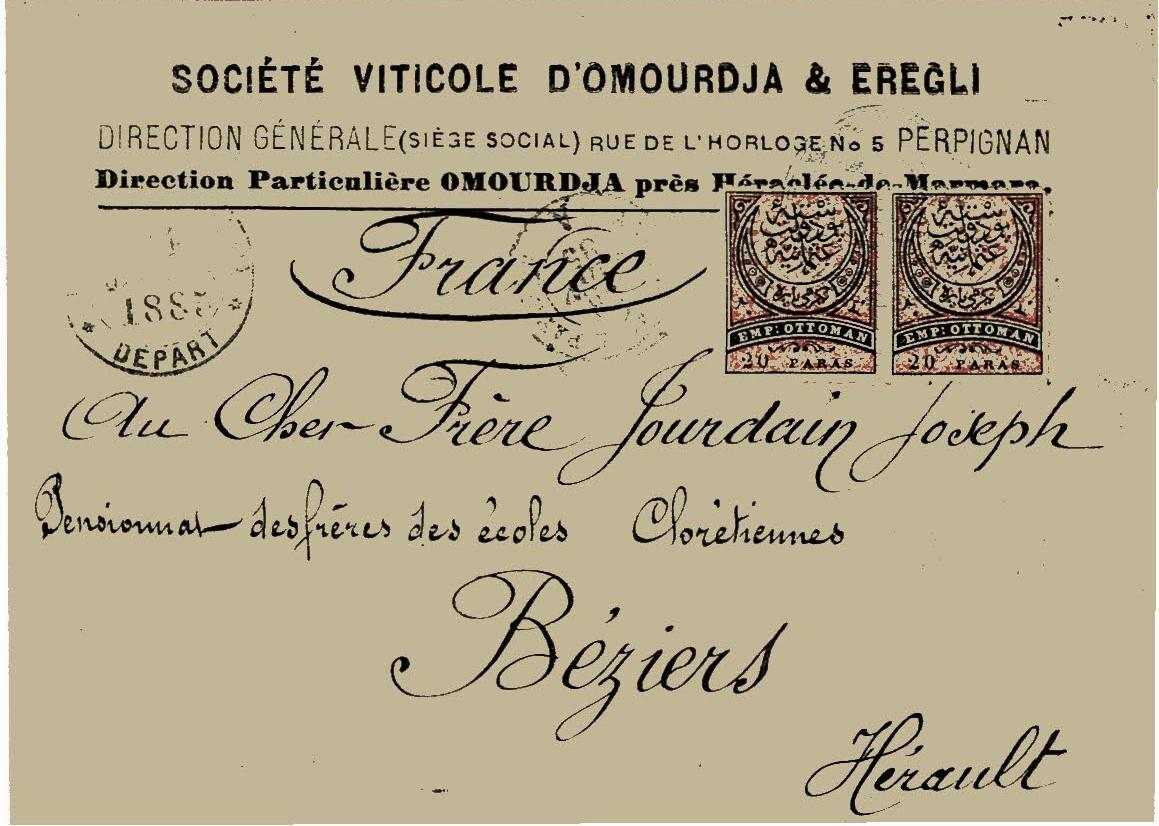 SOCIÉTÉ VITICOLE D'OMOURDJA & EREGLI
DIRECTION GÉNÉRALE (SIÈGE SOCIAL) RUE DE L'HORLOGE No 5 PERPIGNAN
Direction Particulière OMOURDJA près Héraclée-de-Marmara.
DEPART
France
EMP: OTTOMAN
20 PARAS
EMP: OTTOMAN
20 PARAS
Au Cher Frère Jourdain Joseph
Pensionnat des frères des écoles Chrétiennes
Béziers
Hérault